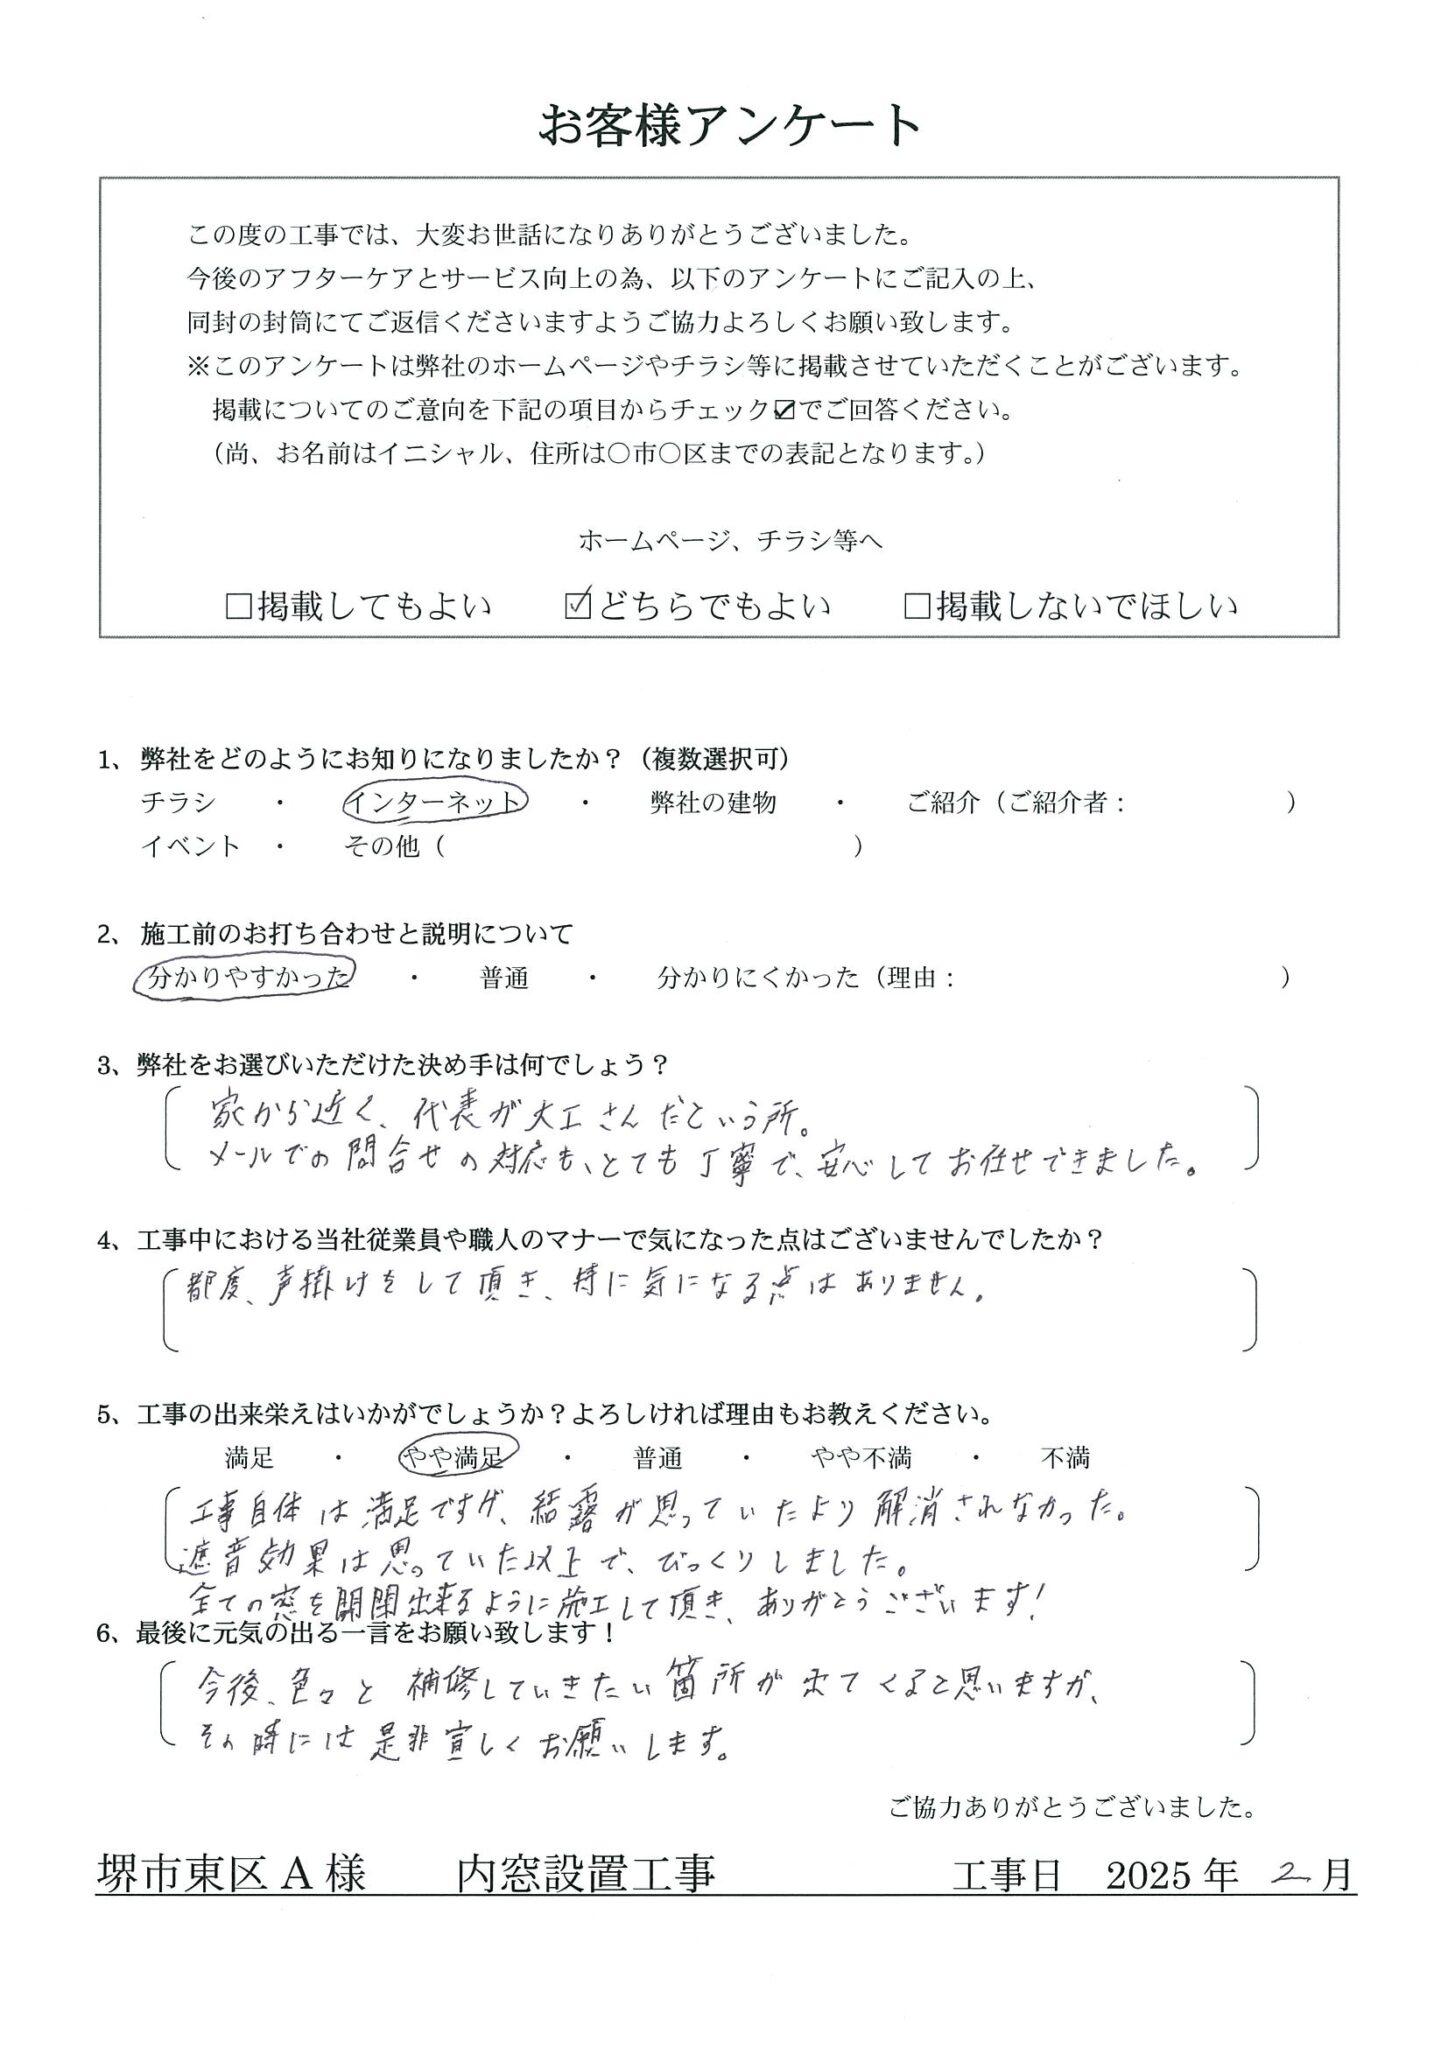 お客様アンケート
この度の工事では、大変お世話になりありがとうございました。
今後のアフターケアとサービス向上の為、以下のアンケートにご記入の上、
同封の封筒にてご返信くださいますようご協力よろしくお願い致します。
※このアンケートは弊社のホームページやチラシ等に掲載させていただくことがございます。
掲載についてのご意向を下記の項目からチェック☑でご回答ください。
（尚、お名前はイニシャル、住所は〇市〇区までの表記となります。）
ホームページ、チラシ等へ
□掲載してもよい ☑どちらでもよい □掲載しないでほしい
1、弊社をどのようにお知りになりましたか？（複数選択可）
チラシ ・ インターネット ・ 弊社の建物 ・ ご紹介（ご紹介者： ）
イベント ・ その他（ ）
2、施工前のお打ち合わせと説明について
分かりやすかった ・ 普通 ・ 分かりにくかった（理由： ）
3、弊社をお選びいただけた決め手は何でしょう？
家から近く、代表が大工さんだという所。
メールでの問合せの対応も、とても丁寧で、安心してお任せできました。
4、工事中における当社従業員や職人のマナーで気になった点はございませんでしたか？
都度、声掛けをして頂き、特に気になる点はありません。
5、工事の出来栄えはいかがでしょうか？よろしければ理由もお教えください。
満足 ・ やや満足 ・ 普通 ・ やや不満 ・ 不満
工事自体は満足ですが、結露が思っていたより解消されなかった。
遮音効果は思っていた以上で、びっくりしました。
全ての窓を開閉出来るように施工して頂き、ありがとうございます！
6、最後に元気の出る一言をお願い致します！
今後、色々と補修していきたい箇所が出てくると思いますが、
その時には是非宜しくお願いします。
ご協力ありがとうございました。
堺市東区 A 様 内窓設置工事 工事日 2025 年 2 月